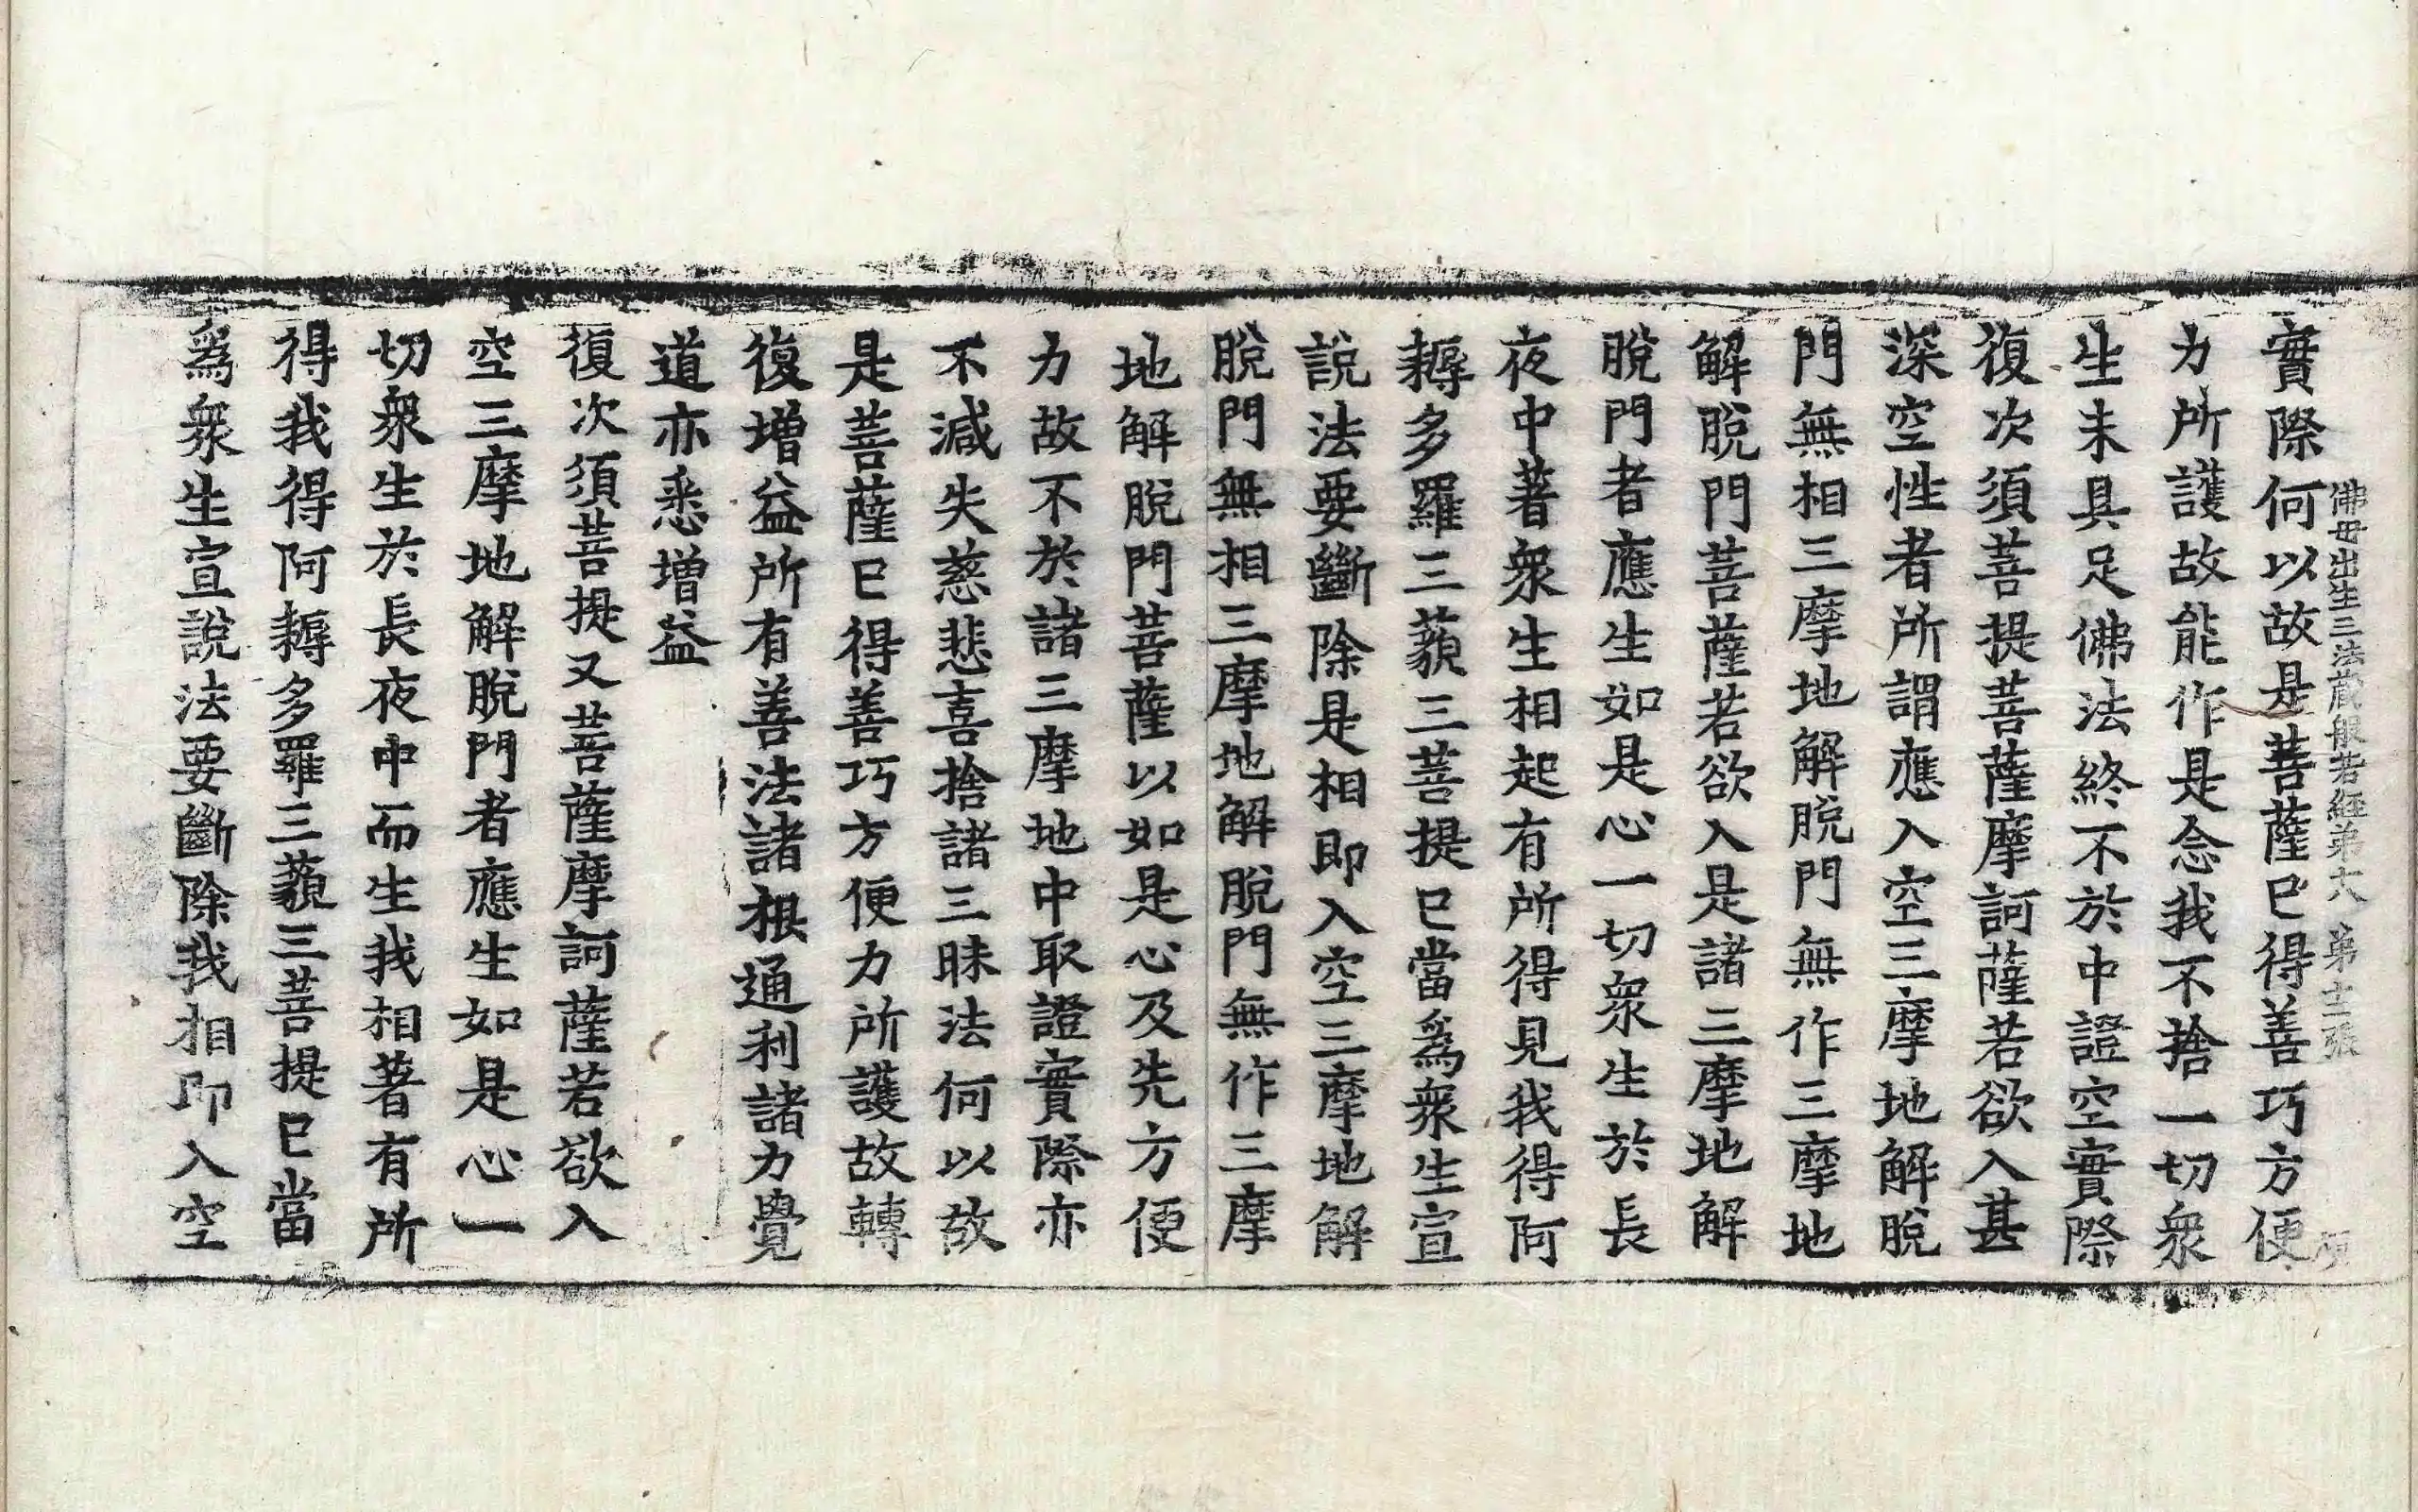 佛母出生三法藏般若經弟六 弟十二張
實際何以故是菩薩巳得善巧方便
力所護故能作是念我不捨一切衆
生未具足佛法終不於中證空實際
復次須菩提菩薩摩訶薩若欲入甚
深空性者所謂應入空三摩地解脫
門無相三摩地解脫門無作三摩地
解脫門菩薩若欲入是諸三摩地解
脫門者應生如是心一切衆生於長
夜中著衆生相起有所得見我得阿
耨多羅三藐三菩提巳當爲衆生宣
說法要斷除是相即入空三摩地解
脫門無相三摩地解脫門無作三摩
地解脫門菩薩以如是心及先方便
力故不於諸三摩地中取證實際亦
不減失慈悲喜捨諸三昧法何以故
是菩薩巳得善巧方便力所護故轉
復增益所有善法諸根通利諸力覺
道亦悉增益
復次須菩提又菩薩摩訶薩若欲入
空三摩地解脫門者應生如是心一
切衆生於長夜中而生我相著有所
得我得阿耨多羅三藐三菩提巳當
爲衆生宣說法要斷除我相即入空